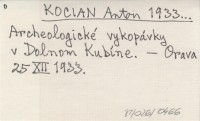 KOCIAN Anton 1933...
Archeologické vykopávky
v Dolnom Kubíne. — Orava
25 XII 1933.